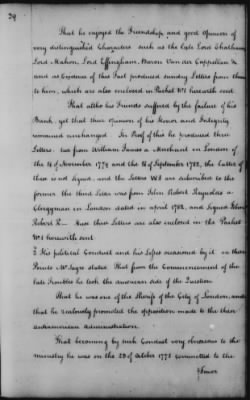 29
That he enjoyed the Friendship and good opinion of
very distinguished Characters such as the late Lord Chatham
Lord Mahon, Lord Effingham, Baron Van der Cappellen &c
and as Evidence of this Fact produced sundry Letters from them
to him, which are also enclosed in Packet No 1 herewith send
That altho his Friends suffered by the failure of his
Bank, yet that their opinion of his Honor and Integrity
remained unchanged. In Proof of this he produced three
Letters. two from William James a Merchant in London of
the 4 of November 1779 and the of September 1782, the latter of
these is not signed, and the Letters WJ are subscribed to the
former the third Letter was from John Robert Reynolds a
Clergyman in London dated in april 1782, and signed John
Robert R—. these three Letters are also enclosed in the Packet
No 1 herewith send
2 His political Conduct and his Losses occasioned by it. on these
Points Mr Sayre stated. That from the Commencement of the
late Troubles he took the american side of the Question.
That he was one of the Sheriffs of the City of London, and
that he zealously promoted the opposition made to the then
antiamerican administration.
That becoming by such Conduct very obnoxious to the
ministry he was on the 23 of October 1775 committed to the
Tower